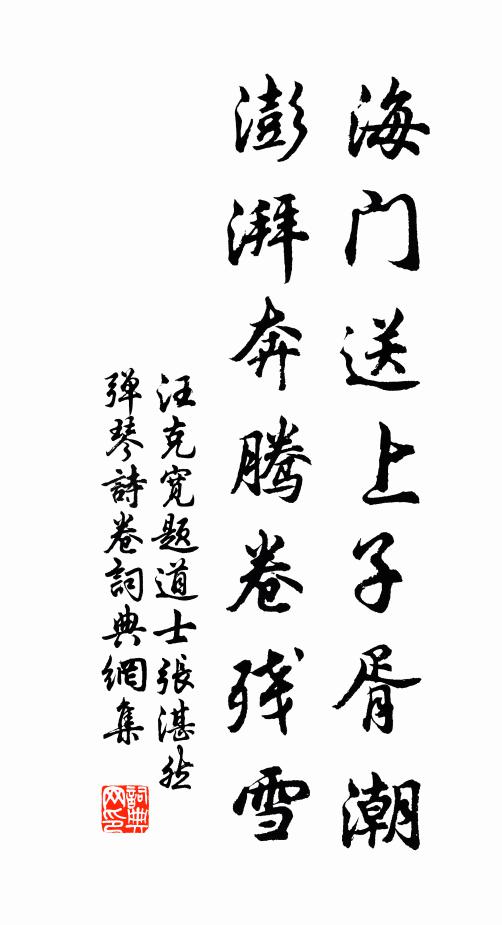 海门送上子胥潮
澎湃奔腾卷残雪
汪克宽题道士張湛然
弹琴詩卷詞典網集
詞典网印